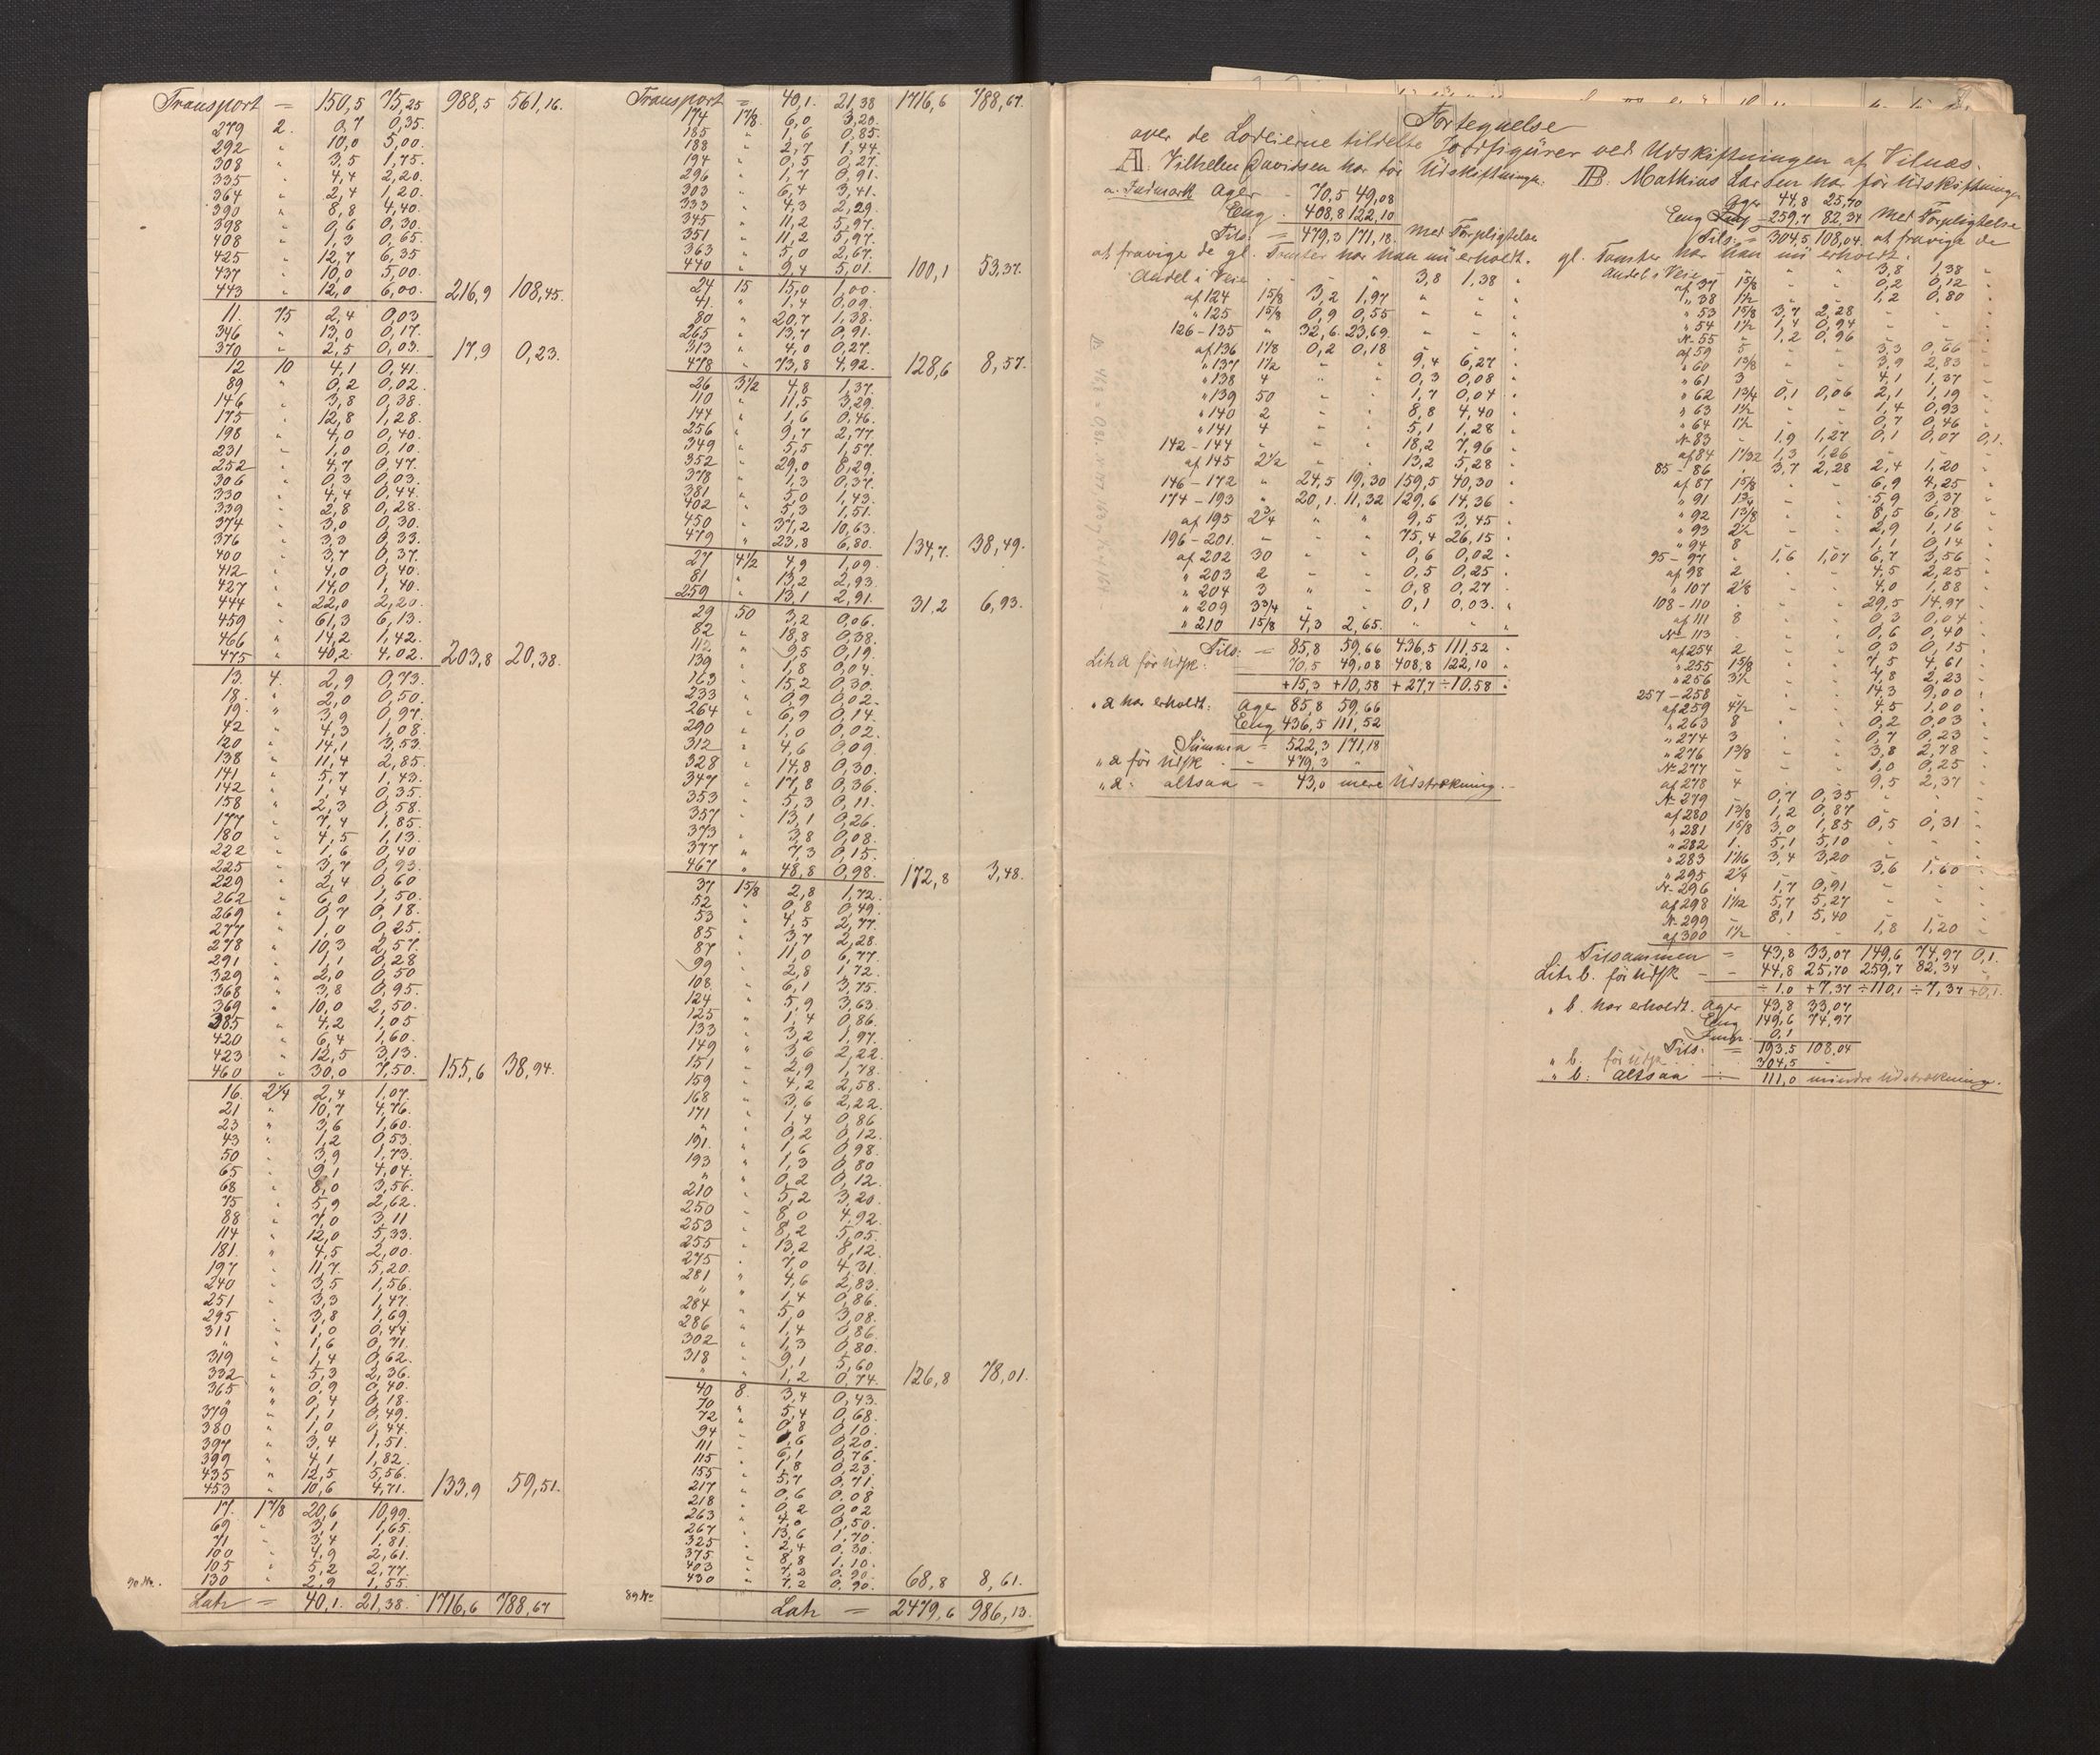 Transport = 150,5 75,25 988,5 561,16.
279 2. 0,7 0,35.
292 " 10,0 5,00.
308 " 3,5 1,75.
335 " 4,4 2,20.
364 " 2,4 1,20.
390 " 8,8 4,40.
398 " 0,6 0,30.
408 " 1,3 0,65.
425 " 12,7 6,35
437 " 10,0 5,00.
443 " 12,0 6,00. 216,9 108,45.
11. 75 2,4 0,03
346 " 13,0 0,17.
370 " 2,5 0,03. 17,9 0,23.
12 10 4,1 0,41.
89 " 0,2 0,02.
146 " 3,8 0,38.
175 " 12,8 1,28.
198 " 4,0 0,40.
231 " 1,0 0,10.
252 " 4,7 0,47.
306 " 0,3 0,03.
330 " 4,4 0,44.
339 " 2,8 0,28.
374 " 3,0 0,30.
376 " 3,3 0,33.
400 " 3,7 0,37.
412 " 4,0 0,40.
427 " 14,0 1,40.
444 " 22,0 2,20.
459 " 61,3 6,13.
466 " 14,2 1,42.
475 " 40,2 4,02. 203,8 20,38.
13. 4. 2,9 0,73.
18. " 2,0 0,50.
19. " 3,9 0,97.
42 " 4,3 1,08.
120 " 14,1 3,53.
138 " 11,4 2,85.
141 " 5,7 1,43.
142 " 1,4 0,35.
158 " 2,3 0,58.
177 " 7,4 1,85.
180 " 4,5 1,13.
222 " 1,6 0,40
225 " 3,7 0,93.
229 " 2,4 0,60
262 " 6,0 1,50.
269 " 0,7 0,18.
277 " 1,0 0,25.
278 " 10,3 2,57.
291 " 1,1 0,28
329 " 2,0 0,50
368 " 3,8 0,95.
369 " 10,0 2,50.
385 " 4,2 1,05
420 " 6,4 1,60.
423 " 12,5 3,13.
460 " 30,0 7,50. 155,6 38,94.
16. 2¼ 2,4 1,07.
21 " 10,7 4,76.
23 " 3,6 1,60.
43 " 1,2 0,53.
50 " 3,9 1,73.
65 " 9,1 4,04.
68 " 8,0 3,56.
75 " 5,9 2,62.
88 " 7,0 3,11
114 " 12,0 5,33.
181. " 4,5 2,00.
197 " 11,7 5,20.
240 " 3,5 1,56.
251 " 3,3 1,47.
295 " 3,8 1,69.
311 " 1,0 0,44
" " 1,6 0,71.
319 " 1,4 0,62.
332 " 5,3 2,36.
365 " 0,9 0,40.
" " 0,4 0,18.
379 " 1,1 0,49.
380 " 1,0 0,44.
397 " 3,4 1,51.
399 " 4,1 1,82.
435 " 12,5 5,56.
453 " 10,6 4,71. 133,9 59,51.
17. 1 7/8 20,6 10,99.
69 " 3,1 1,65.
71 " 3,4 1,81.
100 " 4,9 2,61.
105 " 5,2 2,77.
90 Nr. 130 " 2,9 1,55.
Latr = 40,1. 21,38. 1716,6 788,67
Transport = 40,1. 21,38 1716,6 788,67.
174 1 7/8 6,0 3,20.
185 " 1,6 0,85.
188 " 2,7 1,44.
194 " 0,5 0,27.
296 " 1,7 0,91.
303 " 6,4 3,41.
333 " 4,3 2,29.
345 " 11,2 5,97.
351 " 11,2 5,97.
363 " 5,0 2,67.
440 " 9,4 5,01. 100,1 53,37.
24 15 15,0 1,00.
41. " 1,4 0,09.
80 " 20,7 1,38.
265 " 13,7 0,91.
313 " 4,0 0,27.
478 " 73,8 4,92. 128,6 8,57.
26 3½ 4,8 1,37.
110 " 11,5 3,29.
144 " 1,6 0,46.
256 " 9,7 2,77.
349 " 5,5 1,57.
352 " 29,0 8,29.
378 " 1,3 0,37.
381 " 5,0 1,43.
402 " 5,3 1,51.
450 " 37,2 10,63.
479 " 23,8 6,80. 134,7. 38,49.
27 4½ 4,9 1,09.
81 " 13,2 2,93.
259 " 13,1 2,91. 31,2 6,93.
29 50 3,2 0,06.
82 " 18,8 0,38.
112 " 9,5 0,19.
139 " 1,8 0,04.
163 " 15,2 0,30.
233 " 0,9 0,02.
264 " 6,9 0,14.
290 " 1,0 0,02.
312 " 4,6 0,09.
328 " 14,8 0,30.
347 " 17,8 0,36.
353 " 5,3 0,11.
357 " 13,1 0,26.
373 " 3,8 0,08.
377 " 7,3 0,15.
467 " 48,8 0,98. 172,8 3,48.
37 1 5/8 2,8 1,72.
52 " 0,8 0,49.
53 " 4,5 2,77.
85 " 3,7 2,28.
87 " 11,0 6,77.
99 " 2,8 1,72.
108. " 6,1 3,75.
124 " 5,9 3,63.
125 " 1,4 0,86.
133 " 3,2 1,97.
149 " 3,6 2,22.
151 " 2,9 1,78.
159 " 4,2 2,58.
168 " 3,6 2,22.
171 " 1,4 0,86
" " 0,2 0,12.
191. " 1,6 0,98.
193 " 1,3 0,80
" " 0,2 0,12.
210 " 5,2 3,20.
250 " 8,0 4,92.
253 " 8,2 5,05.
255 " 13,2 8,12.
275 " 7,0 4,31.
281 " 4,6 2,83.
" " 1,4 0,86.
284 " 5,0 3,08.
286 " 1,4 0,86.
302 " 1,3 0,80.
318 " 9,1 5,60
" " 1,2 0,74. 126,8 78,01.
40 8. 3,4 0,43.
70 " 5,4 0,68.
72 " 0,8 0,10.
94 " 1,6 0,20.
111 " 6,1 0,76.
115 " 1,8 0,23.
155 " 5,7 0,71.
217 " 0,6 0,08
218 " 0,2 0,02
263 " 4,0 0,50.
267 " 13,6 1,70.
325 " 2,4 0,30.
375 " 8,8 1,10.
403 " 7,2 0,90.
89 Nr 430 " 7,2 0,90. 68,8 8,61.
Latr = 2479,6 986,13.
Fortegnelse
over de Lodeierne tildelte Jordfigürer ved Udskiftningen af Vilnæs.
A. Vilhelm Davidsen har för Üdskiftningen:
a. Indmark Ager - 70,5 49,08
Eng . 408,8 122,10
Tils: = 479,3 171,18. med Forpligtelse
at fravige de gl. Tomter har han nü erholdt.
Andel i Veie - - - 3,8 1,38 "
af 124 1 5/8 3,2 1,97 " " "
" 125 1 5/8 0,9 0,55 - - "
126-135 " 32,6 23,69 - - "
af 136 1 1/8 0,2 0,18 - - "
" 137 1½ - - 9,4 6,27 "
" 138 4 " - 0,3 0,08 "
" 139 50 - - 1,7 0,04 "
" 140 2 - - 8,8 4,40 "
" 141 4 - - 5,1 1,28 "
142-144 " - - 18,2 7,96 "
af 145 2½ - - 13,2 5,28 "
146-172 " 24,5 19,30 159,5 40,30 "
174-193 " 20,1. 11,32 129,6 14,36 "
af 195 2¾ " " 9,5 3,45 "
196-201. - - - 75,4 26,15 "
af 202 30 - - 0,6 0,02 "
" 203 2 - - 0,5 0,25 "
" 204 3 " - 0,8 0,27 "
" 209 3¾ - - 0,1 0,03. "
" 210 1 5/8 4,3 2,65. " " "
Tils: = 85,8 59,66 436,5 111,52 "
Litr. a för Üdsk: 70,5 49,08 408,8 122,10 "
+15,3 +10,58 +27,7 ÷10.58 "
" a har erholdt: Ager 85,8 59,66
Eng 436,5 111,52
Sümma = 522,3 171,18
" a för Üdsk. - 479,3 "
" a: altsaa = 43,0 mere Üdstrækning.
B. Mathias Larsen har för Üdskiftningen
Ager 44,8 25,70
Eng 259,7 82,34 med Forpligtelse
Tils: = 304,5 108,04. at fravige de
gl. Tomter har han nü erholdt.
Andel i Veie - - - 3,8 1,38 "
af 37 1 5/8 " " 0,2 0,12 "
" 38 1½ - - 1,2 0,80 "
" 53 1 5/8 3,7 2,28 - - "
" 54 1½ 1,4 0,94 - - "
Nr. 55 - 1,2 0,96 - - "
af 59 5 - - 3,3 0,66 "
" 60 1 3/8 - - 3,9 2,83 "
" 61 3 - - 4,1 1,37 "
" 62 1¾ 0,1 0,06 2,1 1,19 "
" 63 1½ - - 1,4 0,93 "
" 64 1½ - - 0,7 0,46 "
Nr. 83 - 1,9 1,27 0,1 0,07 0,1.
af 84 1 1/32 1,3 1,26 - - -
85-86 " 3,7 2,28 2,4 1,20 "
af 87 1 5/8 - - 6,9 4,25 "
" 91 1¾ - - 5,9 3,37 "
" 92 1 3/8 - - 8,5 6,18 "
" 93 2½ - - 2,9 1,16 "
" 94 8 - - 1,1 0,14 "
95-97 " 1,6 1,07 6,7 3,56 "
af 98 2 - - 4,5 2,25 "
" 107 2 1/8 - - 4,0 1,88 "
108-110 " - - 29,5 14,97 "
af 111 8 - - 0,3 0,04 "
Nr. 113 - - - 0,6 0,40 "
af 254 2 - - 0,3 0,15 "
" 255 1 5/8 - - 7,5 4,61 "
" 256 3½ - - 7,8 2,23 "
257-258 - - - 14,3 9,00 "
af 259 4½ - - 4,5 1,00 "
" 263 8 - - 0,2 0,03 "
" 274 3 - - 0,7 0,23 "
" 276 1 3/8 - - 3,8 2,78 "
Nr. 277 - - - 1,0 0,25 "
af 278 4 - - 9,5 2,37 "
Nr. 279 - 0,7 0,35 " " "
af 280 1 3/8 1,2 0,87 - - "
" 281 1 5/8 3,0 1,85 0,5 0,31 "
" 282 1. 5,1 5,10 - - "
" 283 1 1/16 3,4 3,20 - - "
" 295 2¼ - - 3,6 1,60 "
Nr. 296 - 1,7 0,91 - - "
af 298 1 1/12 5,7 5,27 - - "
Nr. 299 - 8,1 5,40 - - "
af 300 1½ - - 1,8 1,20 "
Tilsammen = 43,8 33,07 149,6 74,97 0,1.
Litr b. för Üdsk - - 44,8 25,70 259,7 82,34 -
÷1,0 +7,37 ÷110,1 ÷7,37 +0,1.
" b. har erholdt. Ager 43,8 33,07
Eng 149,6 74,97
0,1
Tils: = 193,5 108,04
" b. för Üdsk. 304,5
" b: altsaa 111,0 mindre Üdstrækning.